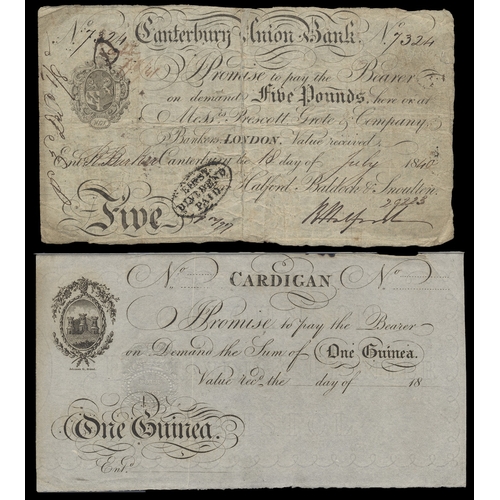 No. 7324 Canterbury Union Bank. No. 7324
I Promise to pay the Bearer
on demand Five Pounds, here or at
Messrs. Prescott, Grote & Company,
Bankers, LONDON. Value received
Canterbury the 18 day of July 1840
Halford, Baldock & Snoulten.
Five
FIRST
DIVIDEND
PAID
No CARDIGAN No
I Promise to pay the Bearer
on Demand the Sum of One Guinea.
Value recd. the day of 18
One Guinea.
Entd.